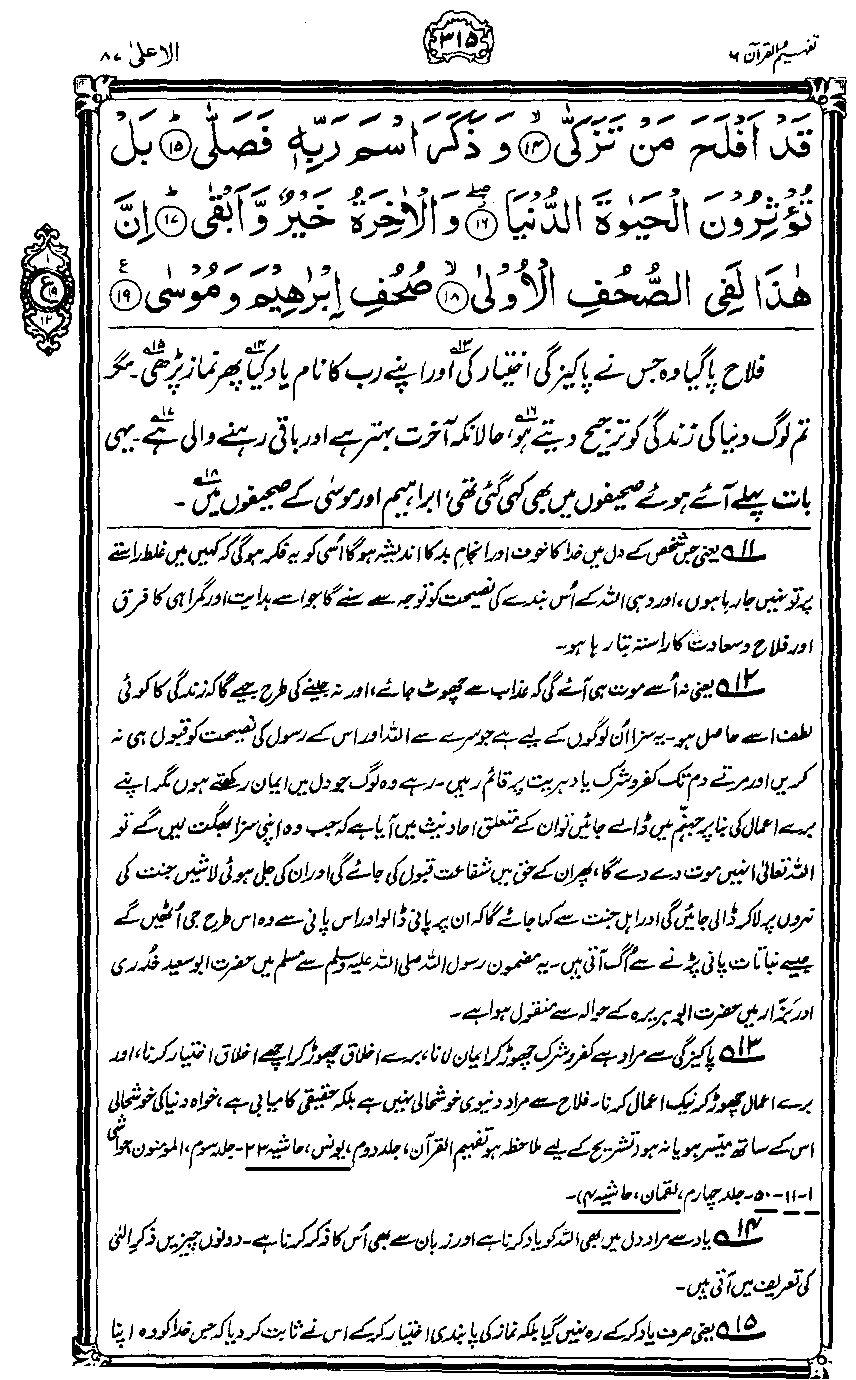 تفہیم القرآن ۶
۳۱۵
الاعلیٰ ۸۷
قَدْ اَفْلَحَ مَنْ تَزَكّٰى ۙ﴿۱۴﴾ وَ ذَكَرَ اسْمَ رَبِّهٖ فَصَلّٰى ؕ﴿۱۵﴾ بَلْ
تُؤْثِرُوْنَ الْحَيٰوةَ الدُّنْيَا ۖ﴿۱۶﴾ وَ الْاٰخِرَةُ خَيْرٌ وَّ اَبْقٰى ؕ﴿۱۷﴾ اِنَّ
هٰذَا لَفِى الصُّحُفِ الْاُوْلٰى ۙ﴿۱۸﴾ صُحُفِ اِبْرٰهِيْمَ وَ مُوْسٰى ﴿۱۹﴾
۱
ع ۱۹
۱۲
فلاح پا گیا وہ جس نے پاکیزگی اختیار کی۱۳ اور اپنے رب کا نام یاد کیا۱۴ پھر نماز پڑھی۱۵۔ مگر
تم لوگ دنیا کی زندگی کو ترجیح دیتے ہو۱۶، حالانکہ آخرت بہتر ہے اور باقی رہنے والی ہے۱۷۔ یہی
بات پہلے آئے ہوئے صحیفوں میں بھی کہی گئی تھی، ابراہیم اور موسٰی کے صحیفوں میں۱۸۔
۱۱ یعنی جس شخص کے دل میں خدا کا خوف اور انجامِ بد کا اندیشہ ہوگا اُسی کو یہ فکر ہوگی کہ کہیں میں غلط راستے
پر تو نہیں جا رہا ہوں، اور وہی اللہ کے اُس بندے کی نصیحت کو توجہ سے سنے گا جو اسے ہدایت اور گمراہی کا فرق
اور فلاح و سعادت کا راستہ بتا رہا ہو۔
۱۲ یعنی نہ اُسے موت ہی آئے گی کہ عذاب سے چھوٹ جائے، اور نہ جینے کی طرح جیے گا کہ زندگی کا کوئی
لطف اسے حاصل ہو۔ یہ سزا اُن لوگوں کے لیے ہے جو سرے سے اللہ اور اس کے رسول کی نصیحت کو قبول ہی نہ
کریں اور مرتے دم تک کفر و شرک یا دہریت پر قائم رہیں۔ رہے وہ لوگ جو دل میں ایمان رکھتے ہوں مگر اپنے
برے اعمال کی بنا پر جہنم میں ڈالے جائیں تو ان کے متعلق احادیث میں آیا ہے کہ جب وہ اپنی سزا بھگت لیں گے تو
اللہ تعالٰی انہیں موت دے دے گا، پھر ان کے حق میں شفاعت قبول کی جائے گی اور ان کی جلی ہوئی لاشیں جنت کی
نہروں پر لا کر ڈالی جائیں گی اور اہلِ جنت سے کہا جائے گا کہ ان پر پانی ڈالو اور اس پانی سے وہ اس طرح جی اُٹھیں گے
جیسے نباتات پانی پڑنے سے اُگ آتی ہیں۔ یہ مضمون رسول اللہ صلی اللہ علیہ وسلم سے مسلم میں حضرت ابو سعید خُدری
اور بَزّار میں حضرت ابوہریرہ کے حوالہ سے منقول ہوا ہے۔
۱۳ پاکیزگی سے مراد ہے کفر و شرک چھوڑ کر ایمان لانا، برے اخلاق چھوڑ کر اچھے اخلاق اختیار کرنا، اور
برے اعمال چھوڑ کر نیک اعمال کرنا۔ فلاح سے مراد دنیوی خوشحالی نہیں ہے بلکہ حقیقی کامیابی ہے، خواہ دنیا کی خوشحالی
اس کے ساتھ میسر ہو یا نہ ہو (تشریح کے لیے ملاحظہ ہو تفہیم القرآن، جلد دوم، یونس، حاشیہ ۲۳۔ جلد سوم، المؤمنون حواشی
۱-۱۱-۵۰۔ جلد چہارم، لقمان، حاشیہ ۴)۔
۱۴ یاد سے مراد دل میں بھی اللہ کو یاد کرنا ہے اور زبان سے بھی اُس کا ذکر کرنا ہے۔ دونوں چیزیں ذکرِ الٰہی
کی تعریف میں آتی ہیں۔
۱۵ یعنی صرف یاد کر کے رہ نہیں گیا بلکہ نماز کی پابندی اختیار کر کے اس نے ثابت کر دیا کہ جس خدا کو وہ اپنا